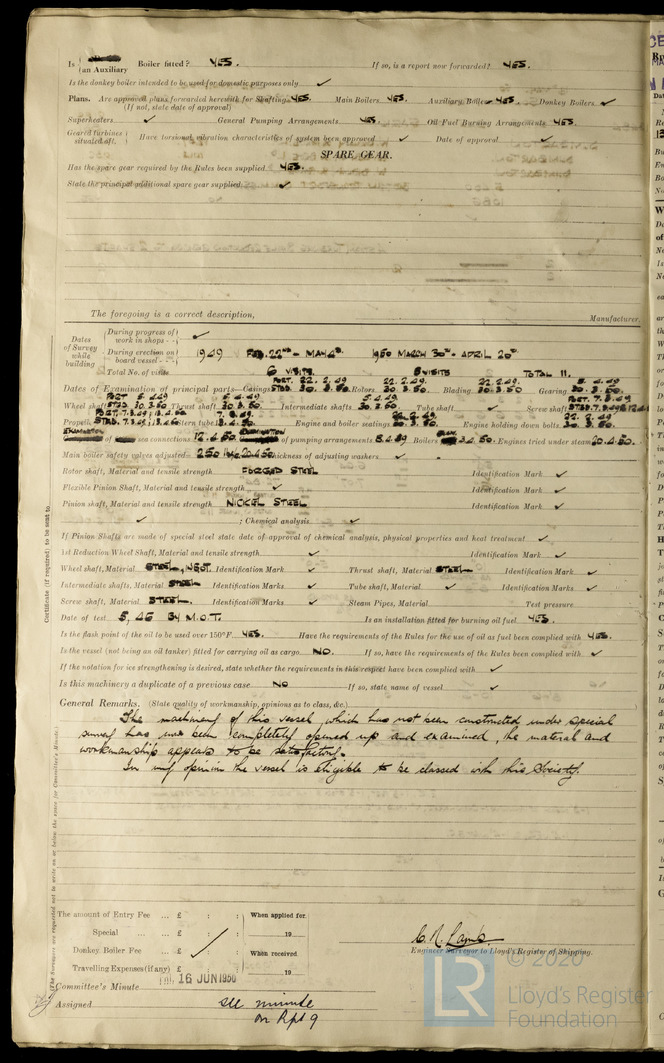 Is an Auxiliary Boiler fitted? YES. If so, is a report now forwarded? YES.
Is the donkey boiler intended to be used for domestic purposes only ✓
Plans. Are approved plans forwarded herewith for Shafting YES. Main Boilers YES. Auxiliary Boilers YES. Donkey Boilers ✓
(If not, state date of approval)
Superheaters ✓ General Pumping Arrangements YES. Oil Fuel Burning Arrangements YES.
Geared turbines situated aft. Have torsional vibration characteristics of system been approved ✓ Date of approval ✓
SPARE GEAR.
Has the spare gear required by the Rules been supplied YES.
State the principal additional spare gear supplied ✓
The foregoing is a correct description,
Manufacturer.
Dates of Survey while building
During progress of work in shops - - ✓
During erection on board vessel - - 1949 FEB. 22ND - MAY 4TH. 1950 MARCH 30TH - APRIL 20TH
Total No. of visits 6 VISITS 5 VISITS TOTAL 11.
Dates of Examination of principal parts— Casings PORT. 22.2.49 STBD. 30.3.50. Rotors 22.2.49. 30.3.50. Blading 22.2.49. 30.3.50. Gearing 5.4.49 30.3.50.
Wheel shaft PORT 5.4.49 STBD. 30.3.50 Thrust shaft 5.4.49 30.3.50. Intermediate shafts 5.4.49. 30.3.50. Tube shaft ✓ Screw shaft PORT. 7.3.49 STBD. 7.3.49
Propeller PORT. 7.3.49 STBD. 7.3.49 Stern tube 7.3.49. Engine and boiler seatings 22.2.49. 30.3.50. Engine holding down bolts 22.2.49. 30.3.50.
EXAMINATION of sea connections 12.4.50. EXAMINATION of pumping arrangements 5.4.49 Boilers 3.4.50. Engines tried under steam 20.4.50.
Main boiler safety valves adjusted 20.4.50 Thickness of adjusting washers ✓
Rotor shaft, Material and tensile strength FORGED STEEL Identification Mark ✓
Flexible Pinion Shaft, Material and tensile strength ✓ Identification Mark ✓
Pinion shaft, Material and tensile strength NICKEL STEEL Identification Mark ✓
✓ ; Chemical analysis ✓
If Pinion Shafts are made of special steel state date of approval of chemical analysis, physical properties and heat treatment ✓
1st Reduction Wheel Shaft, Material and tensile strength ✓ Identification Mark ✓
Wheel shaft, Material STEEL, INGOT. Identification Mark ✓ Thrust shaft, Material STEEL Identification Mark ✓
Intermediate shafts, Material STEEL Identification Marks ✓ Tube shaft, Material ✓ Identification Marks ✓
Screw shaft, Material STEEL. Identification Marks ✓ Steam Pipes, Material Test pressure
Date of test 5, 46 BY M.O.T. Is an installation fitted for burning oil fuel YES.
Is the flash point of the oil to be used over 150°F. YES. Have the requirements of the Rules for the use of oil as fuel been complied with YES.
Is the vessel (not being an oil tanker) fitted for carrying oil as cargo NO. If so, have the requirements of the Rules been complied with ✓
If the notation for ice strengthening is desired, state whether the requirements in this respect have been complied with ✓
Is this machinery a duplicate of a previous case NO If so, state name of vessel ✓
General Remarks. (State quality of workmanship, opinions as to class, &c.)
The machinery of this vessel, which has not been constructed under special
survey has now been completely opened up and examined, the material and
workmanship appears to be satisfactory.
In my opinion the vessel is eligible to be classed with this Society.
Certificate (if required) to be sent to
(The Surveyors are requested not to write on or below the space for Committee's Minute.)
The amount of Entry Fee ... £ : :
Special ... ... £ : :
Donkey Boiler Fee ... £ ✓ : :
Travelling Expenses (if any) £ : :
When applied for.
19
When received.
19
C. R. Lamb
Engineer Surveyor to Lloyd's Register of Shipping.
Committee's Minute 16 JUN 1950
Assigned see minute
on Rpt 9
© 2020
LR
Lloyd's Register
Foundation